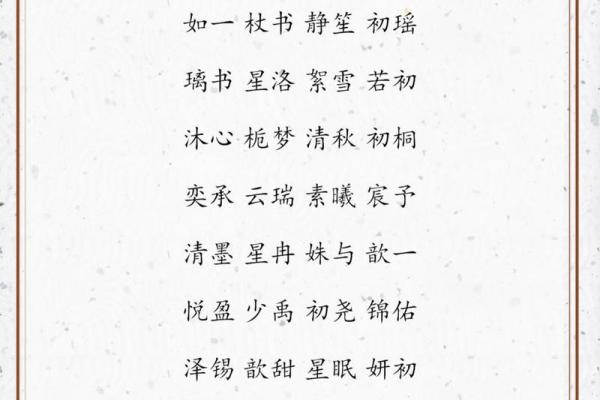 如一 杖书 静笙 初瑶
璃书 星洛 絮雪 若初
沐心 栀梦 清秋 初桐
奕承 云瑞 素曦 宸予
清墨 星冉 姝与 歆一
悦盈 少禹 初尧 锦佑
泽锡 歆甜 星眠 妍初